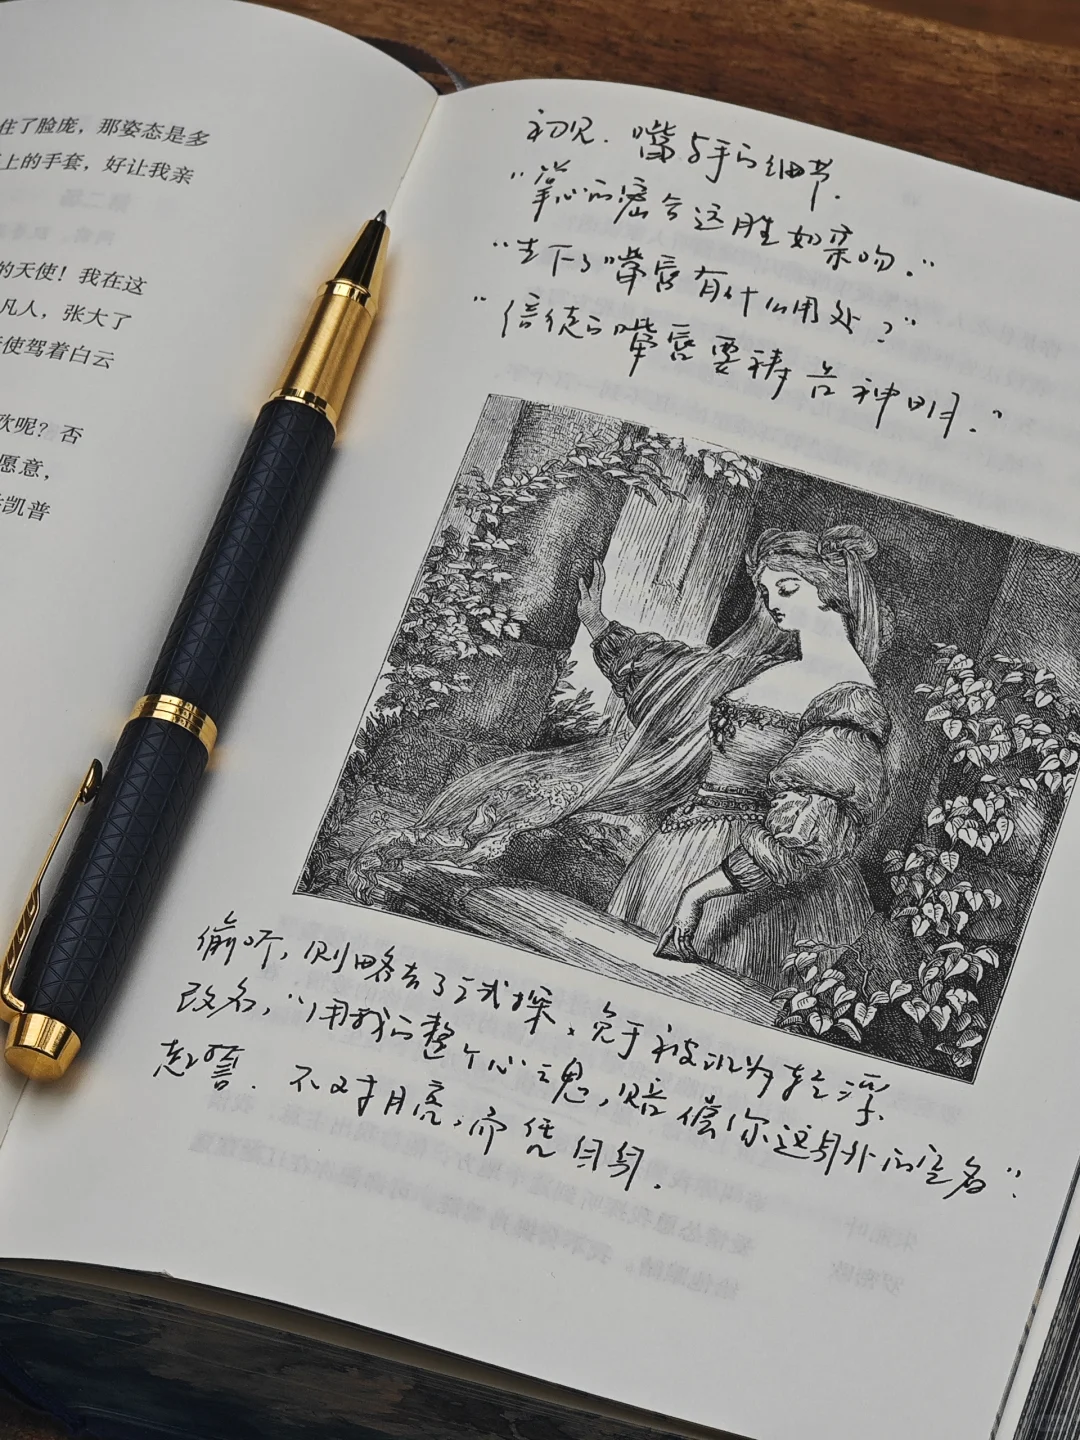 住了脸庞，那姿态是多
上的手套，好让我亲
的天使！我在这
凡人，张大了
使驾着白云
欢呢？否
愿意，
凯普
初见．嘴与手的细节．
“掌心的密合远胜如亲吻．”
“生下了嘴唇有什么用处？”
“信徒的嘴唇要祷告神明．”
偷听，则略去了试探，免于被认为轻浮．
改名，“用我的整个心魂，赔偿你这身外的空名”．
起誓．不对月亮，而凭自身．